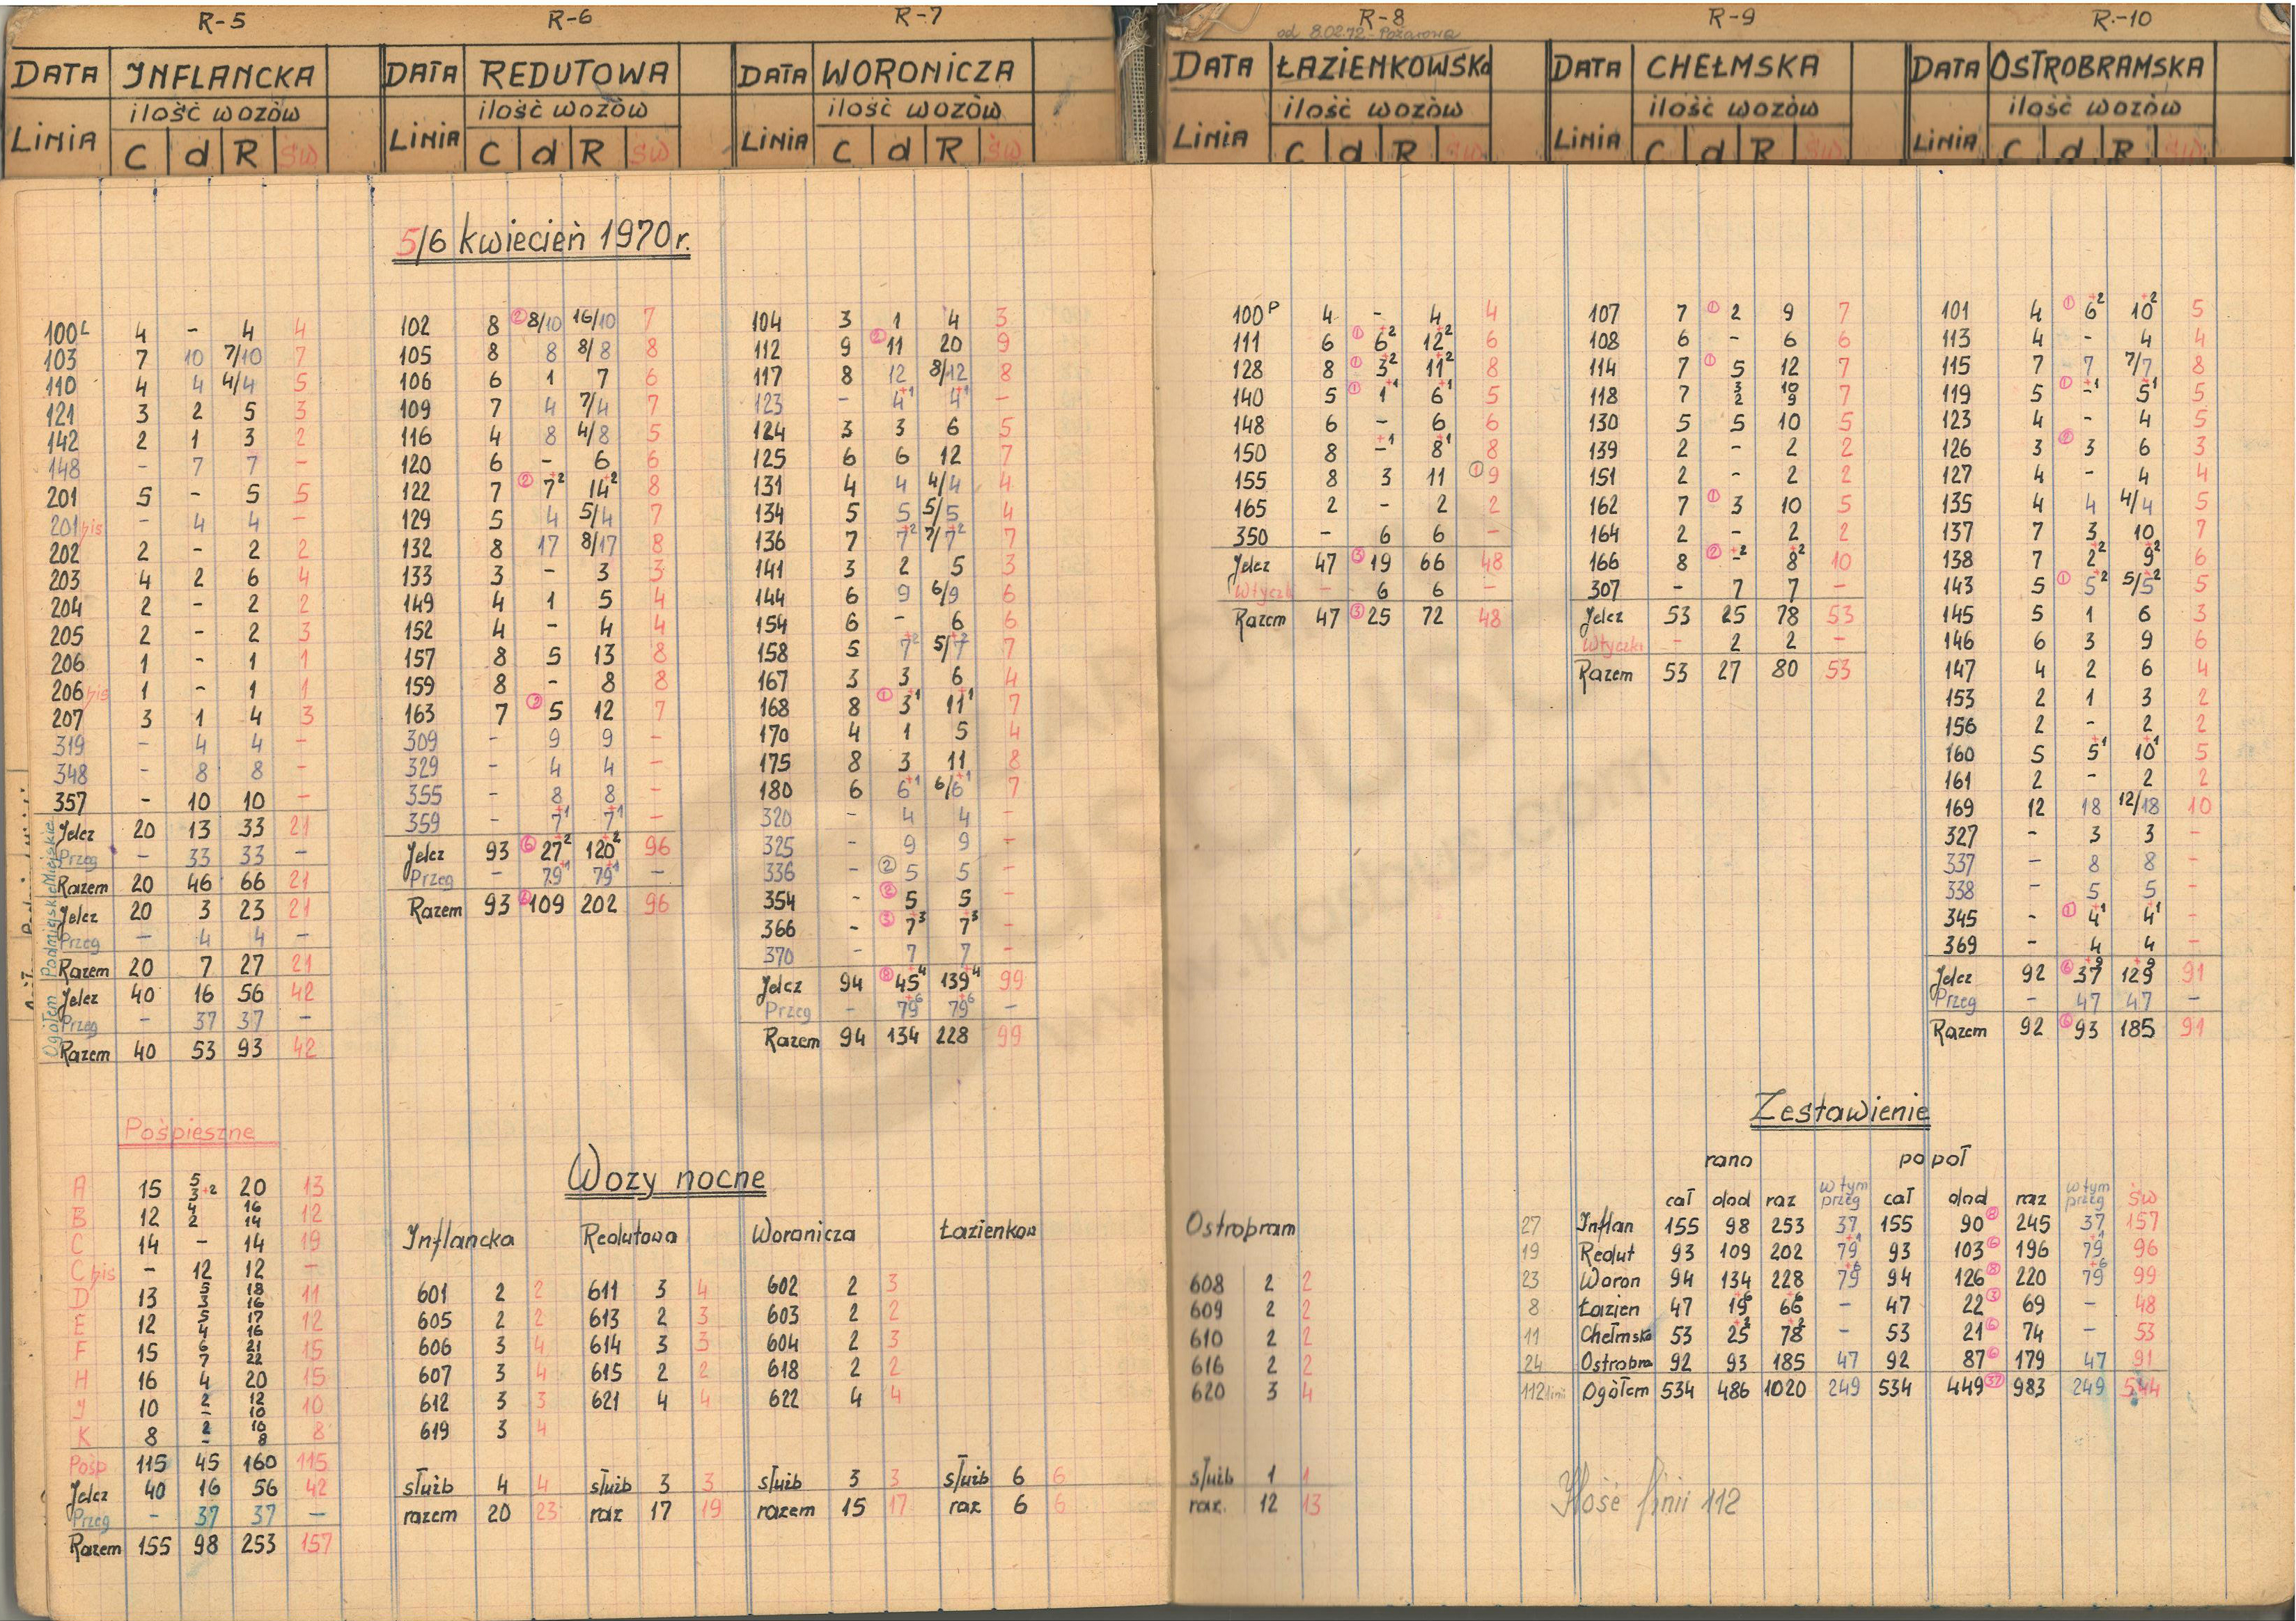 R-5
DATA INFLANCKA
ilość wozów
LINIA C d R św
100L 4 - 4 4
103 7 10 7/10 7
110 4 4 4/4 5
121 3 2 5 3
142 2 1 3 2
148 - 7 7 -
201 5 - 5 5
201 bis - 4 4 -
202 2 - 2 2
203 4 2 6 4
204 2 - 2 2
205 2 - 2 3
206 1 - 1 1
206 bis 1 - 1 1
207 3 1 4 3
319 - 4 4 -
348 - 8 8 -
357 - 10 10 -
Miejskie
Jelcz 20 13 33 21
Przeg - 33 33 -
Razem 20 46 66 21
Podmiejskie
Jelcz 20 3 23 21
Przeg - 4 4 -
Razem 20 7 27 21
Ogółem
Jelcz 40 16 56 42
Przeg - 37 37 -
Razem 40 53 93 42
Pośpieszne
A 15 5/3+2 20 13
B 12 4/2 16/14 12
C 14 - 14 19
C bis - 12 12 -
D 13 5/3 18/16 11
E 12 5/4 17/16 12
F 15 6/7 21/22 15
H 16 4 20 15
J 10 2/- 12/10 10
K 8 2/- 10/8 8
Pośp 115 45 160 115
Jelcz 40 16 56 42
Przeg - 37 37 -
Razem 155 98 253 157
5/6 kwiecień 1970r.
R-6
DATA REDUTOWA
ilość wozów
LINIA C d R św
102 8 ② 8/10 16/10 7
105 8 8 8/8 8
106 6 1 7 6
109 7 4 7/4 7
116 4 8 4/8 5
120 6 - 6 6
122 7 ② 7+2 14+2 8
129 5 4 5/4 7
132 8 17 8/17 8
133 3 - 3 3
149 4 1 5 4
152 4 - 4 4
157 8 5 13 8
159 8 - 8 8
163 7 ② 5 12 7
309 - 9 9 -
329 - 4 4 -
355 - 8 8 -
359 - 7+1 7+1 -
Jelcz 93 ⑥ 27+2 120+2 96
Przeg - 79+1 79+1 -
Razem 93 109 202 96
R-7
DATA WORONICZA
ilość wozów
LINIA C d R św
104 3 1 4 3
112 9 ② 11 20 9
117 8 12 8/12 8
123 - 4+1 4+1 -
124 3 3 6 5
125 6 6 12 7
131 4 4 4/4 4
134 5 5 5/5 4
136 7 7+2 7/7+2 7
141 3 2 5 3
144 6 9 6/9 6
154 6 - 6 6
158 5 7+2 5/7+2 7
167 3 3 6 4
168 8 ① 3+1 11+1 7
170 4 1 5 4
175 8 3 11 8
180 6 6+1 6/6+1 7
320 - 4 4 -
325 - 9 9 -
336 - ② 5 5 -
354 - ② 5 5 -
366 - ③ 7+3 7+3 -
370 - 7 7 -
Jelcz 94 ⑧ 45+4 139+4 99
Przeg - 79+6 79+6 -
Razem 94 134 228 99
Wozy nocne
Inflancka
601 2 2
605 2 2
606 3 4
607 3 4
612 3 3
619 3 4
służb 4 4
razem 20 23
Redutowa
611 3 4
613 2 3
614 3 3
615 2 2
621 4 4
służb 3 3
raz 17 19
Woronicza
602 2 3
603 2 2
604 2 3
618 2 2
622 4 4
służb 3 3
razem 15 17
Łazienkow
służb 6 6
raz 6 6
Ostrobram
608 2 2
609 2 2
610 2 2
616 2 2
620 3 4
służb 1 1
raz. 12 13
R-8
od 8.02.72 - Pożarowa
DATA ŁAZIENKOWSKA
ilość wozów
LINIA C d R św
100P 4 - 4 4
111 6 ① 6+2 12+2 6
128 8 ① 3+2 11+2 8
140 5 ① 1+1 6+1 5
148 6 - 6 6
150 8 -+1 8+1 8
155 8 3 11 ① 9
165 2 - 2 2
350 - 6 6 -
Jelcz 47 ③ 19 66 48
Wtyczk - 6 6 -
Razem 47 ③ 25 72 48
R-9
DATA CHEŁMSKA
ilość wozów
LINIA C d R św
107 7 ① 2 9 7
108 6 - 6 6
114 7 ① 5 12 7
118 7 3/2 10/9 7
130 5 5 10 5
139 2 - 2 2
151 2 - 2 2
162 7 ① 3 10 5
164 2 - 2 2
166 8 ② -+2 8+2 10
307 - 7 7 -
Jelcz 53 25 78 53
Wtyczki - 2 2 -
Razem 53 27 80 53
R.-10
DATA OSTROBRAMSKA
ilość wozów
LINIA C d R św
101 4 ① 6+2 10+2 5
113 4 - 4 4
115 7 7 7/7 8
119 5 ① -+1 5+1 5
123 4 - 4 5
126 3 ② 3 6 3
127 4 - 4 4
135 4 4 4/4 5
137 7 3 10 7
138 7 2+2 9+2 6
143 5 ① 5+2 5/5+2 5
145 5 1 6 3
146 6 3 9 6
147 4 2 6 4
153 2 1 3 2
156 2 - 2 2
160 5 5+1 10+1 5
161 2 - 2 2
169 12 18 12/18 10
327 - 3 3 -
337 - 8 8 -
338 - 5 5 -
345 - ① 4+1 4+1 -
369 - 4 4 -
Jelcz 92 ⑥ 37+9 129+9 91
Przeg - 47 47 -
Razem 92 ⑥ 93 185 91
Zestawienie
rano popoł
cał dod raz w tym przeg cał dod raz w tym przeg św
27 Inflan 155 98 253 37 155 90⑧ 245 37 157
19 Redut 93 109 202 79+1 93 103⑥ 196 79+1 96
23 Woron 94 134 228 79+6 94 126⑧ 220 79+6 99
8 Łazien 47 19+6 66+6 - 47 22③ 69 - 48
11 Chełmska 53 25+2 78+2 - 53 21⑥ 74 - 53
24 Ostrobra 92 93 185 47 92 87⑥ 179 47 91
112 linii Ogółem 534 486 1020 249 534 449㊲ 983 249 544
Ilość linii 112